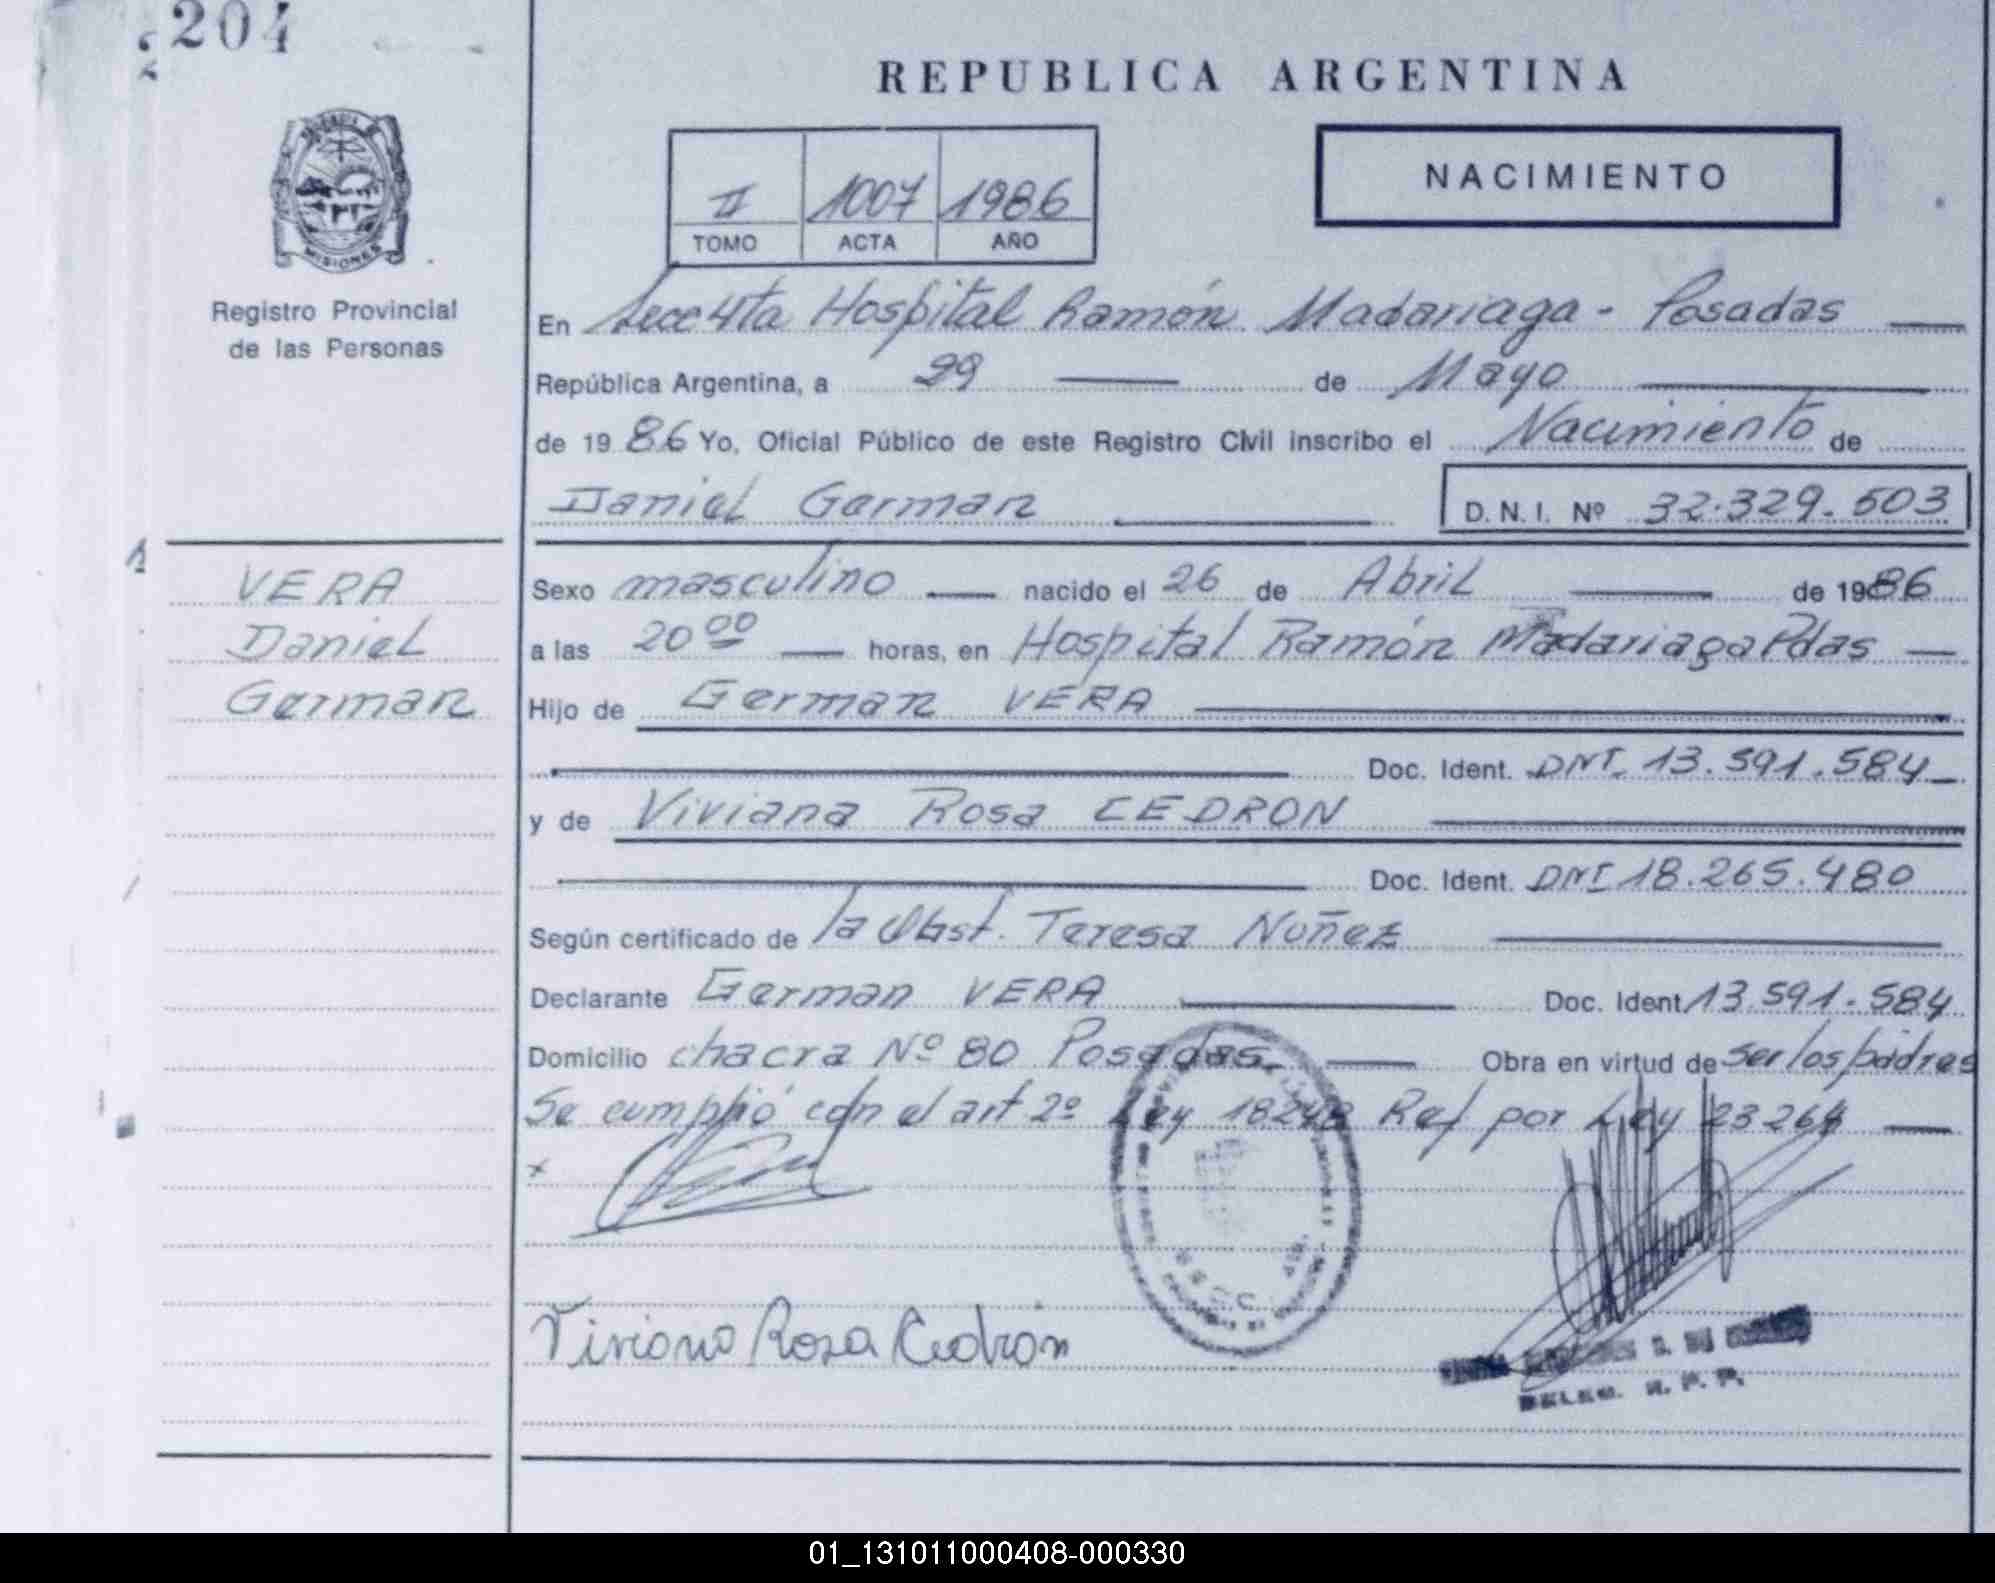 204
REPUBLICA ARGENTINA
NACIMIENTO
II 1007 1986
TOMO ACTA AÑO
MISIONES
Registro Provincial
de las Personas
En Secc 4ta Hospital Ramón Madariaga - Posadas
República Argentina, a 29 de Mayo
de 1986 Yo, Oficial Público de este Registro Civil inscribo el Nacimiento de
Daniel German D. N. I. Nº 32.329.503
VERA
Daniel
German
Sexo masculino nacido el 26 de Abril de 1986
a las 20 00 horas, en Hospital Ramón Madariaga Pdas
Hijo de German VERA
Doc. Ident. DNI. 13.591.584
y de Viviana Rosa CEDRON
Doc. Ident. DNI 18.265.480
Según certificado de la Obst. Teresa Nuñez
Declarante German VERA Doc. Ident. 13.591.584
Domicilio chacra Nº 80 Posadas. Obra en virtud de ser los padres
Se cumplió con el art 2º Ley 18248 Ref por Ley 23264
x
Viviana Rosa Cedrón
DELEG. R. P. P.
01_131011000408-000330